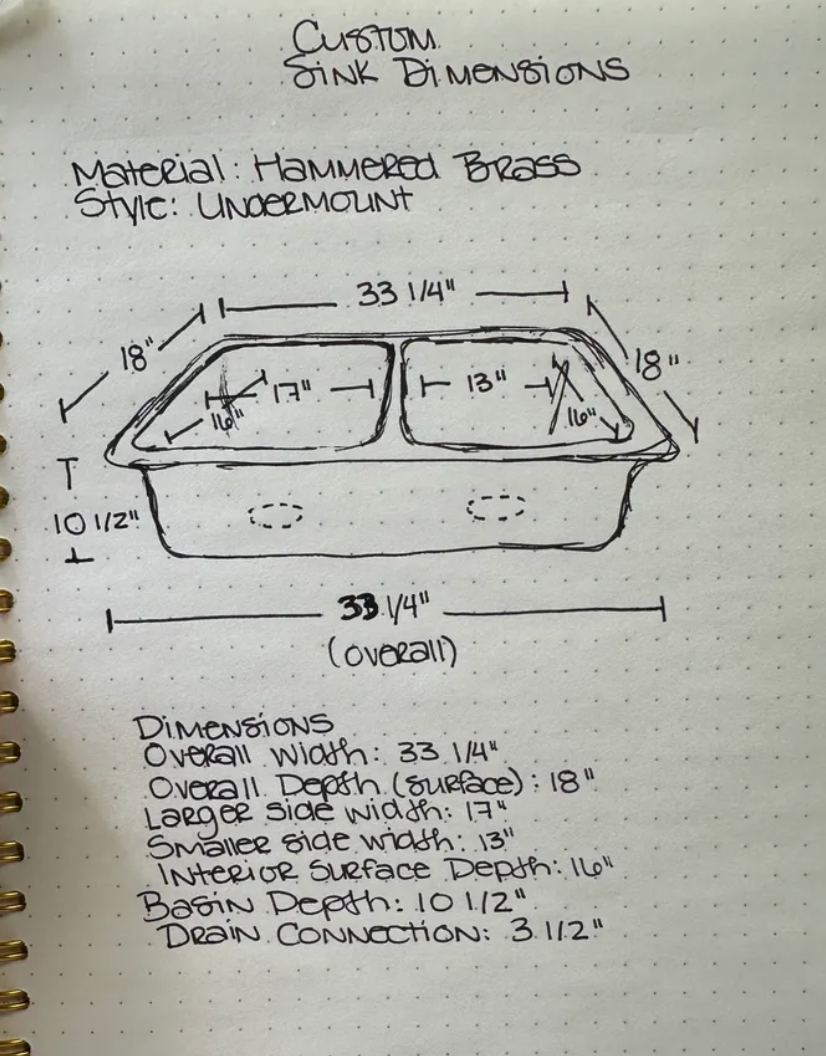 Custom
Sink Dimensions
Material: Hammered Brass
Style: Undermount
33 1/4"
18"
18"
17"
13"
16"
16"
10 1/2"
33 1/4"
(overall)
Dimensions
Overall Width: 33 1/4"
Overall Depth (surface): 18"
Larger side width: 17"
Smaller side width: 13"
Interior Surface Depth: 16"
Basin Depth: 10 1/2"
Drain Connection: 3 1/2"